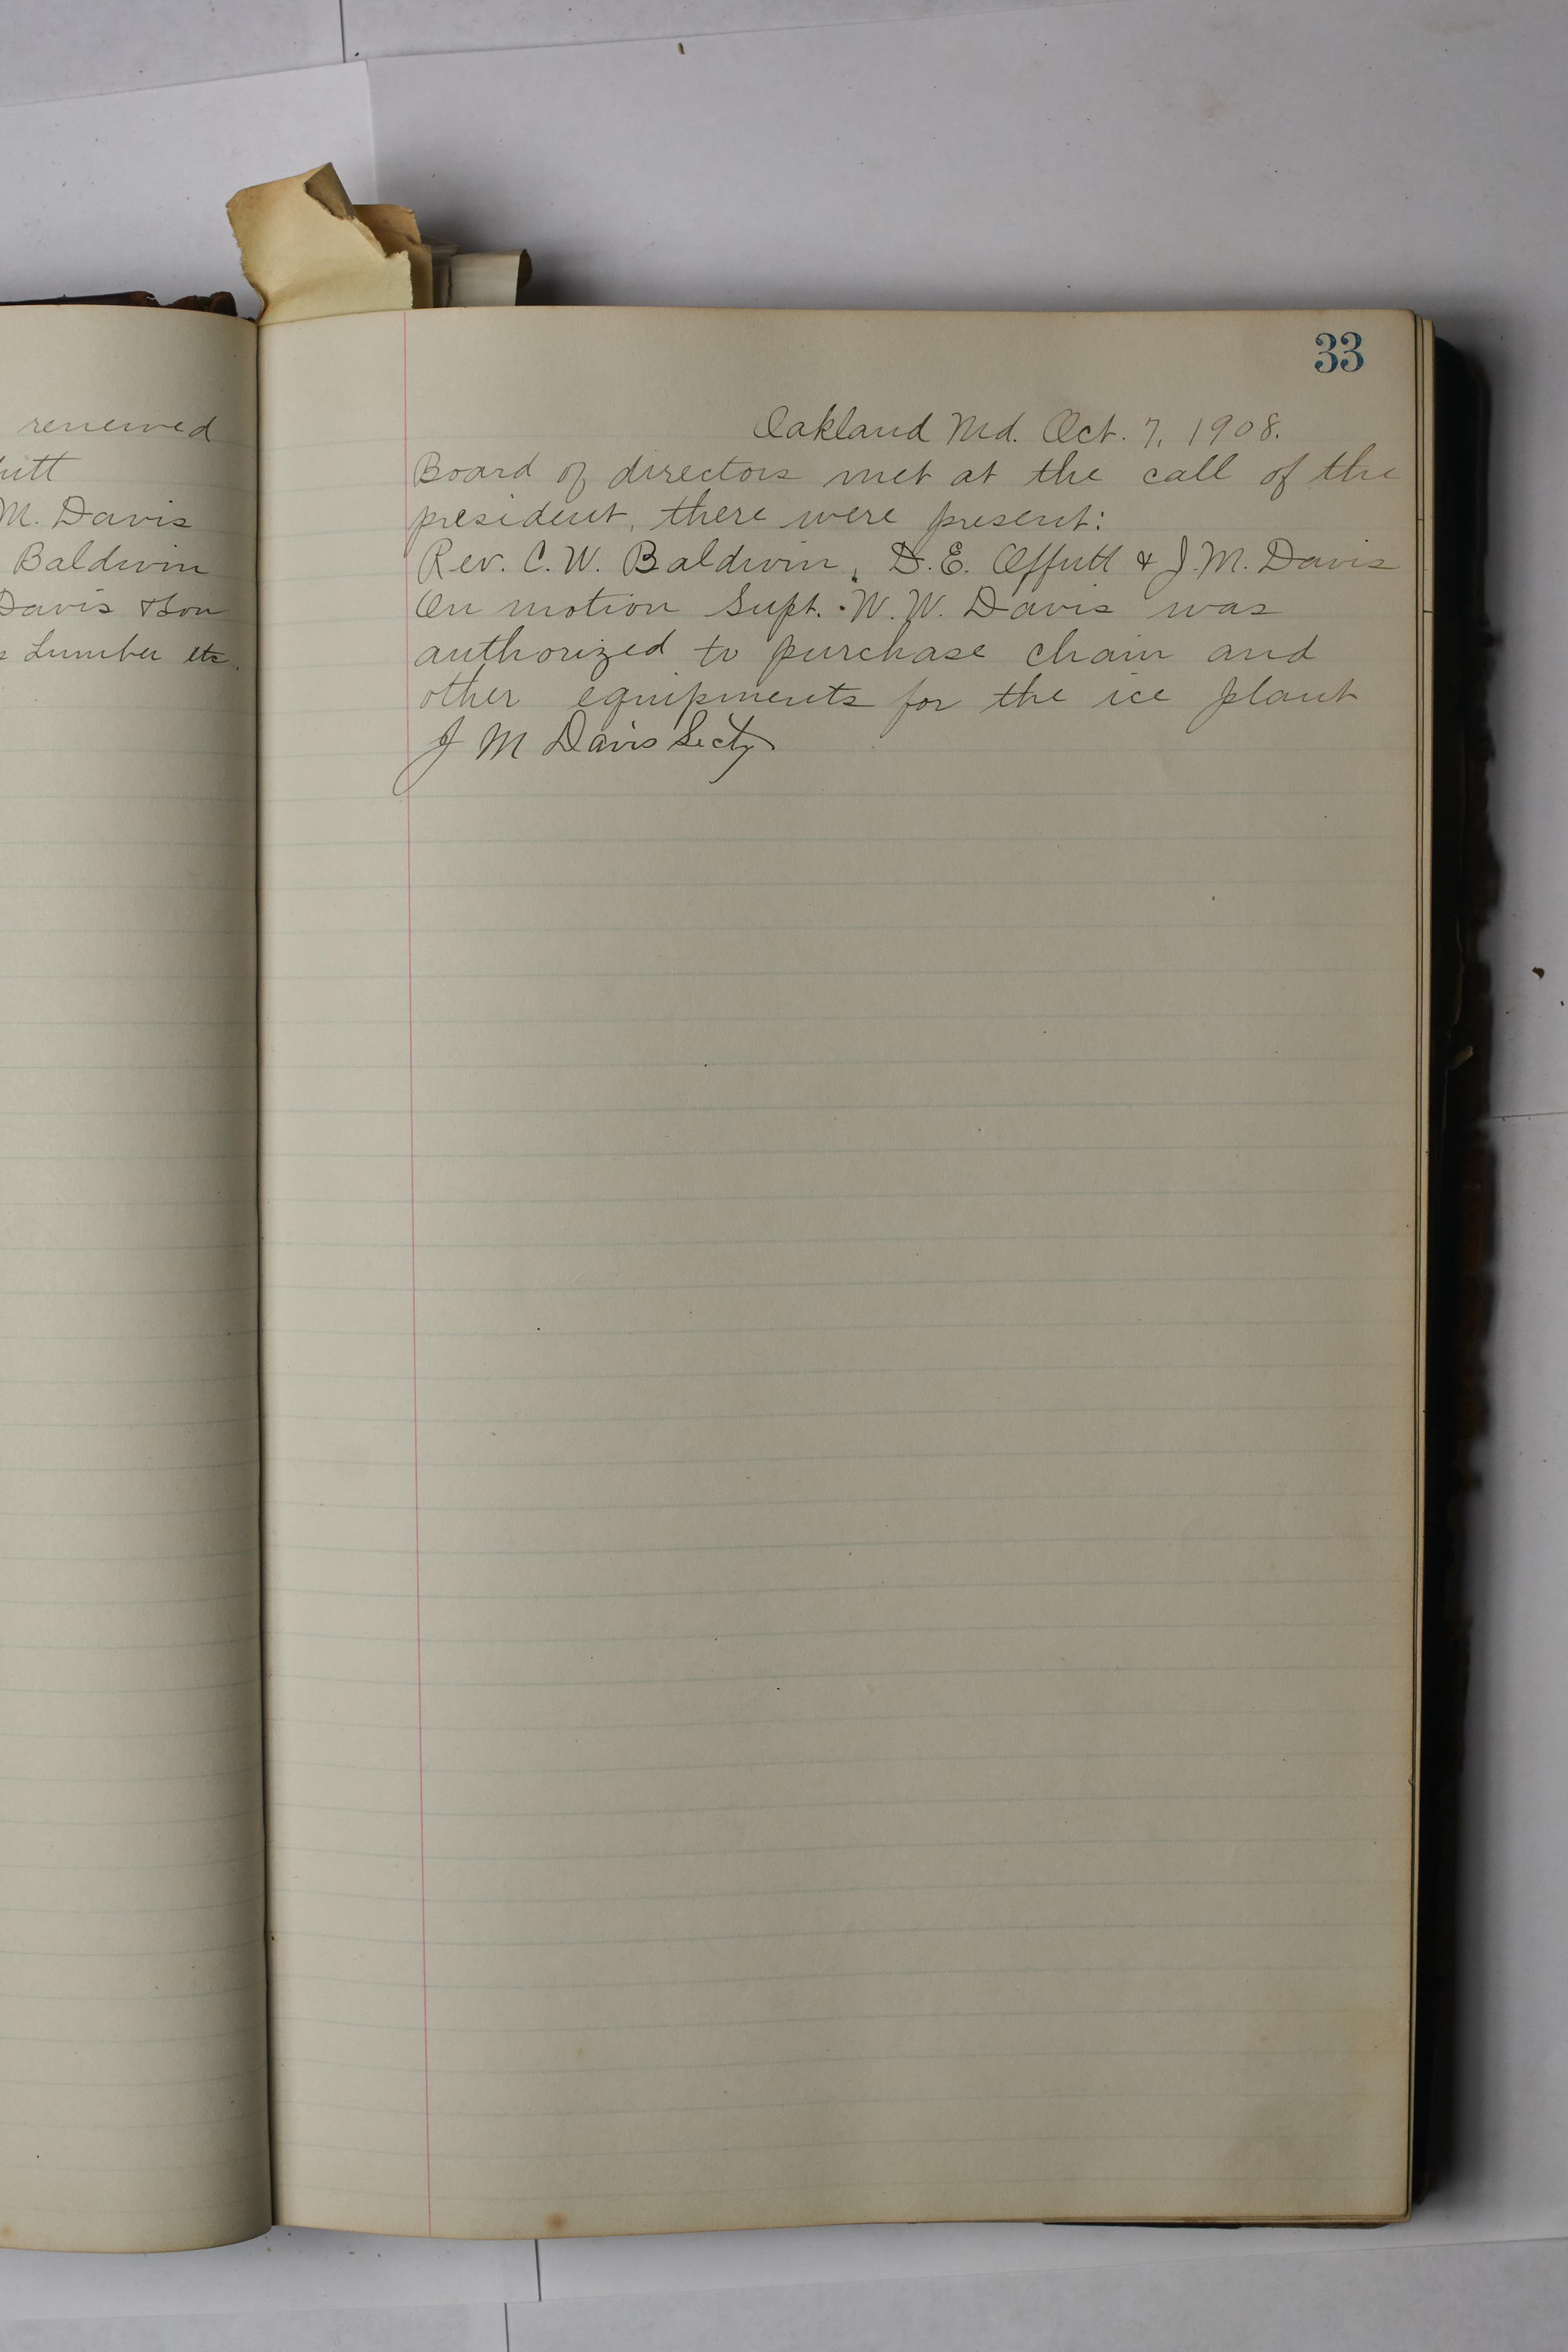 renewed
M. Davis
Baldwin
Davis & Son
Lumber etc.
33
Oakland Md. Oct. 7, 1908.
Board of directors met at the call of the
president, there were present:
Rev. C. W. Baldwin, D. E. Offutt & J. M. Davis
On motion Supt. W. W. Davis was
authorized to purchase chain and
other equipments for the ice plant
J M Davis Secty